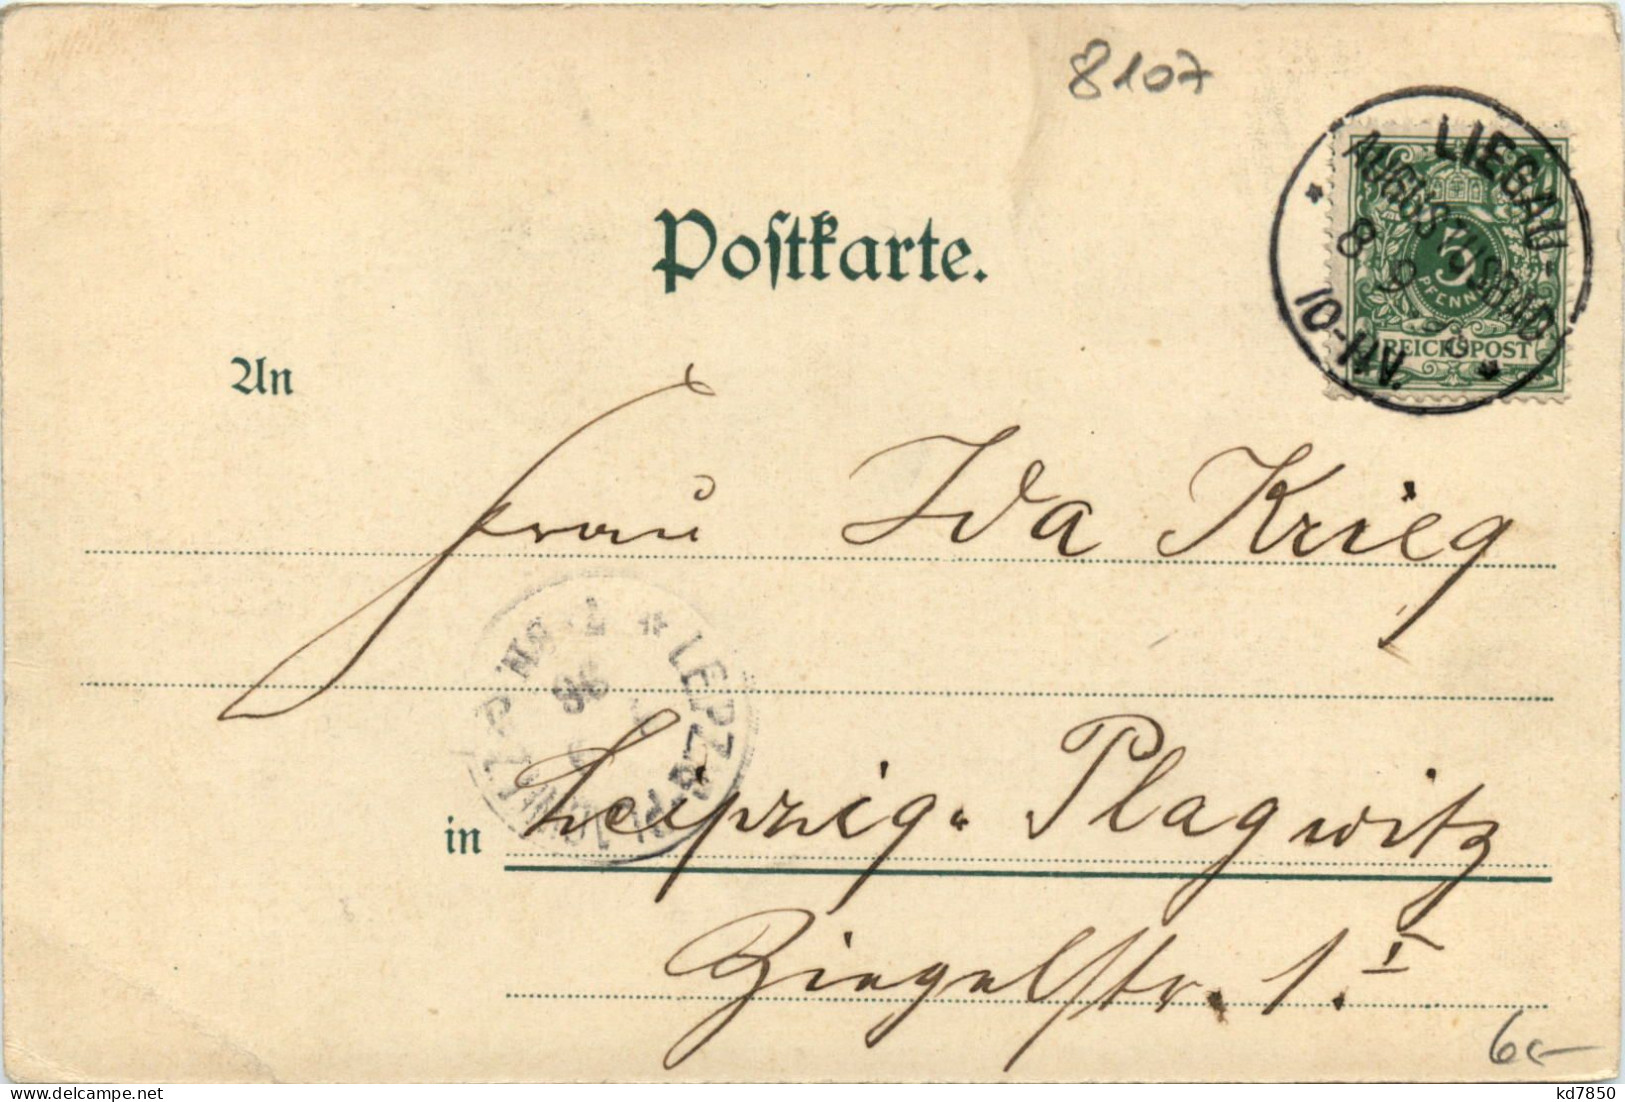 8107
LIEGAU-
AUGUSTUSBAD
8 9
10-11
REICHSPOST
5
PFENNIG
Postkarte.
An
Frau Ida Krieg
LEIPZIG-PLAGWITZ
in Leipzig-Plagwitz
Ziegelstr. 1. I
kd7850